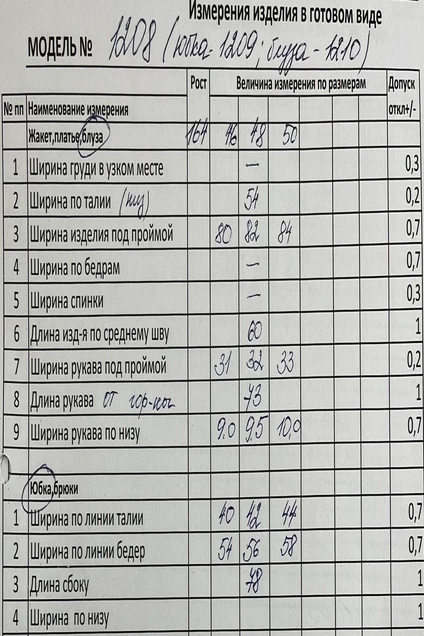 Измерения изделия в готовом виде
МОДЕЛЬ № 1208 (юбка-1209; блуза-1210)
Рост Величина измерения по размерам Допуск
№ пп Наименование измерения откл+/-
Жакет,платье,блуза 164 46 48 50
1 Ширина груди в узком месте — 0,3
2 Ширина по талии (низ) 54 0,2
3 Ширина изделия под проймой 80 82 84 0,7
4 Ширина по бедрам — 0,7
5 Ширина спинки — 0,3
6 Длина изд-я по среднему шву 60 1
7 Ширина рукава под проймой 31 32 33 0,2
8 Длина рукава от гор-ны 73 1
9 Ширина рукава по низу 9.0 9,5 10,0 0,7
Юбка,брюки
1 Ширина по линии талии 40 42 44 0,7
2 Ширина по линии бедер 54 56 58 0,7
3 Длина сбоку 78 1
4 Ширина по низу 1